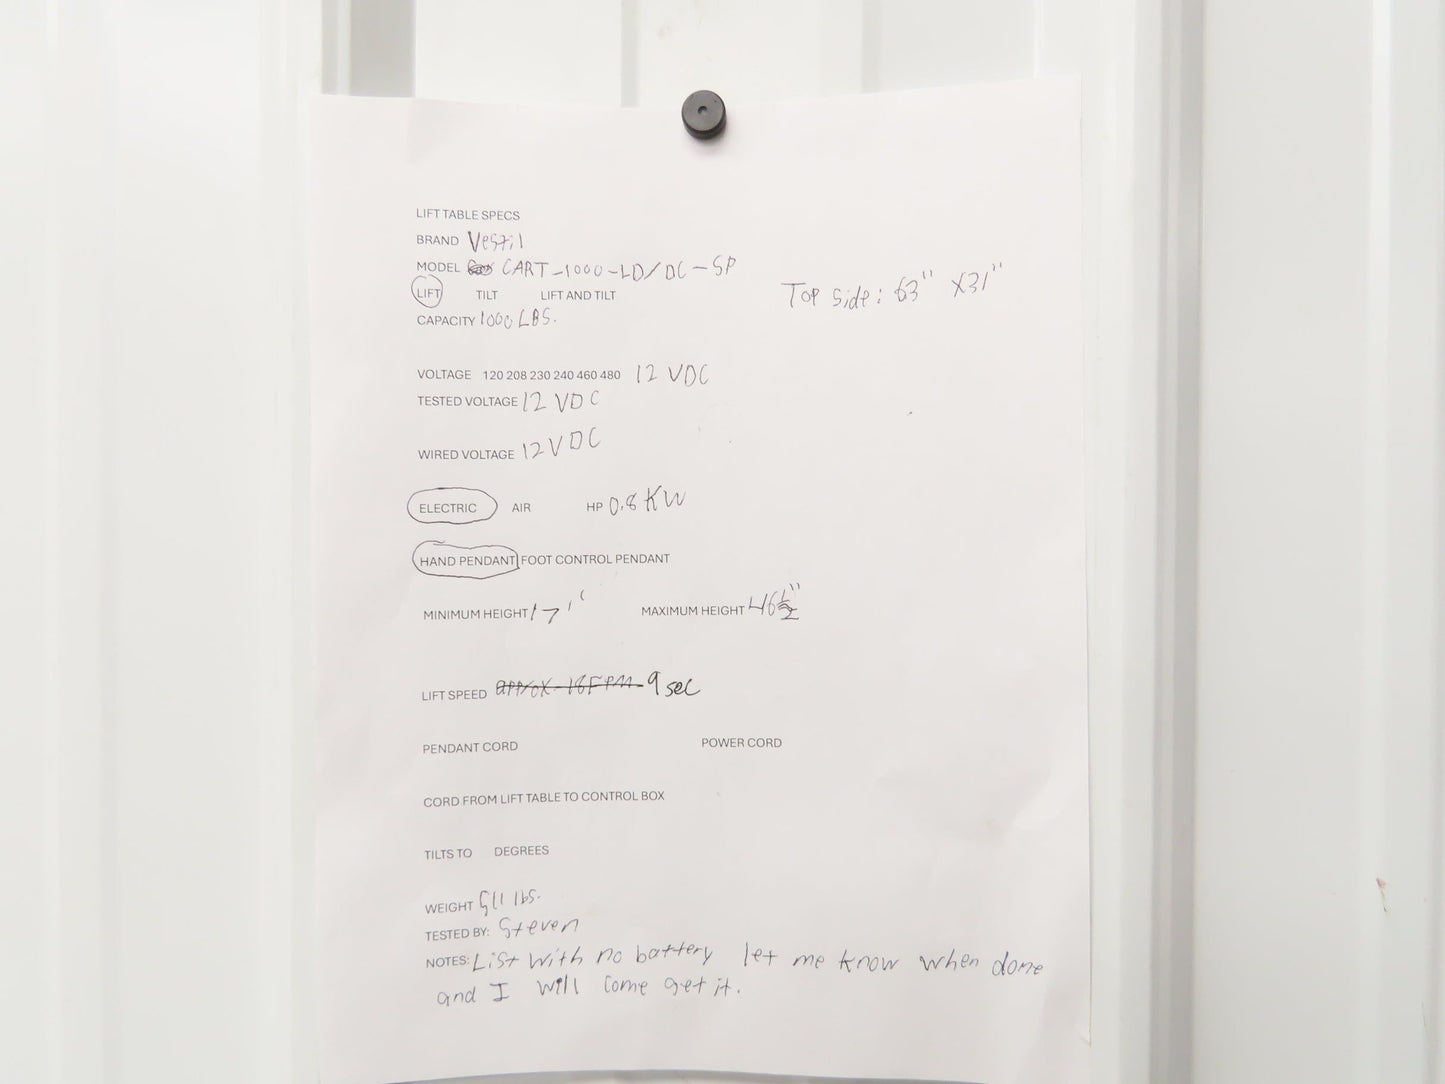 LIFT TABLE SPECS
BRAND Vestil
MODEL CART-1000-LD/DC-SP
LIFT TILT LIFT AND TILT
Top side: 63" x31"
CAPACITY 1000 LBS.
VOLTAGE 120 208 230 240 460 480 12 VDC
TESTED VOLTAGE 12 VDC
WIRED VOLTAGE 12VDC
ELECTRIC AIR HP 0.8 KW
HAND PENDANT FOOT CONTROL PENDANT
MINIMUM HEIGHT 17" MAXIMUM HEIGHT 46 1/2"
LIFT SPEED approx 18FPM 9 sec
PENDANT CORD POWER CORD
CORD FROM LIFT TABLE TO CONTROL BOX
TILTS TO DEGREES
WEIGHT 511 lbs.
TESTED BY: Steven
NOTES: List with no battery let me know when done
and I will come get it.